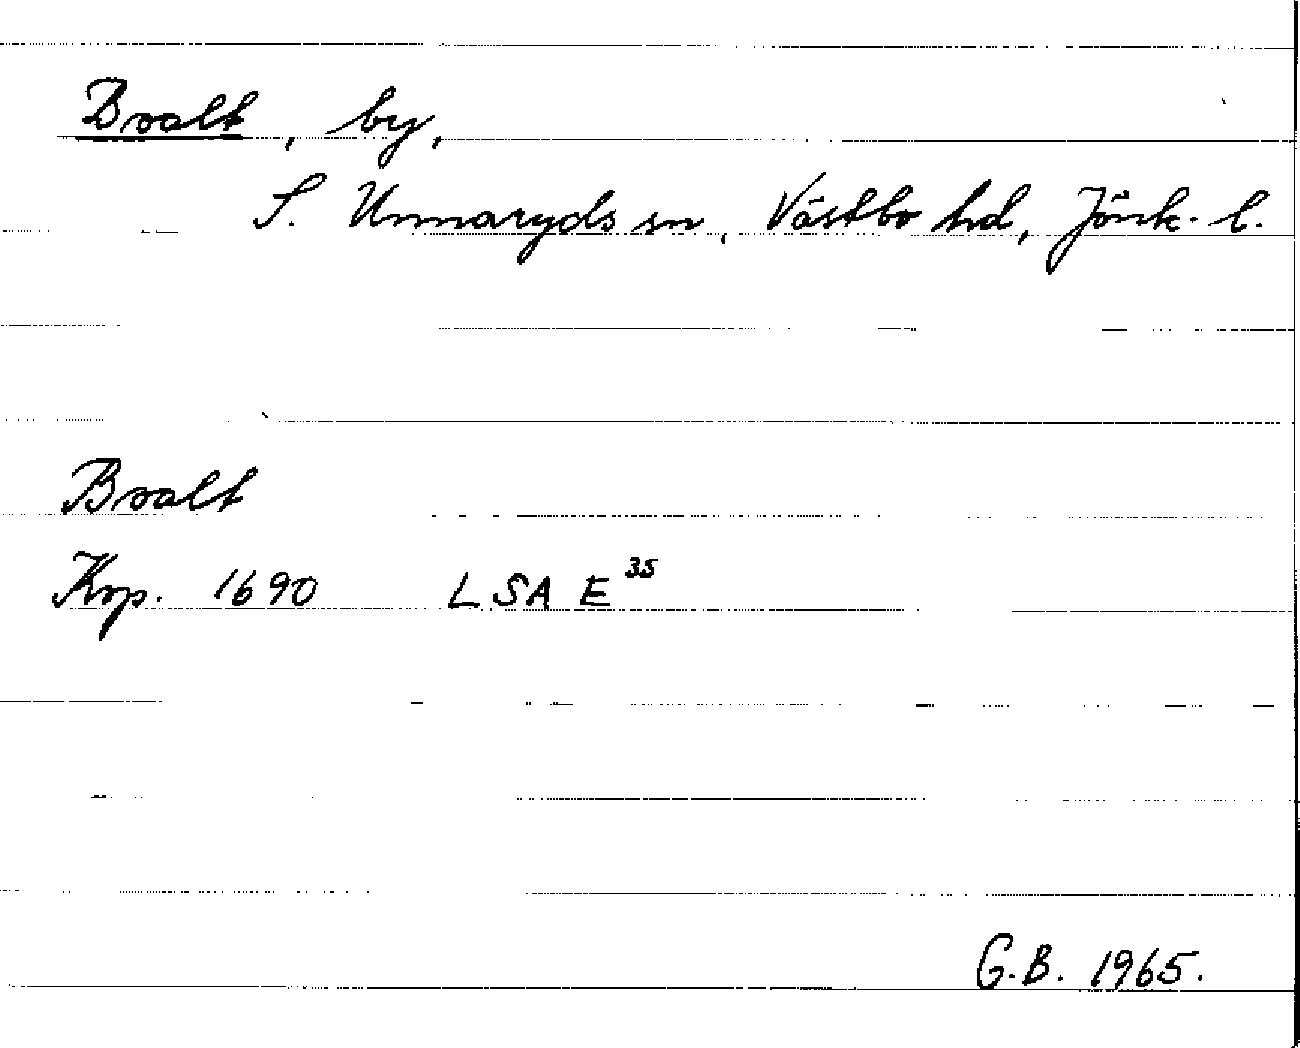 Bvalt, by,
S. Unnaryds sn, Västbo hd, Jönk. l.
Bvalt
Kop. 1690 LSA E 35
G.B. 1965.